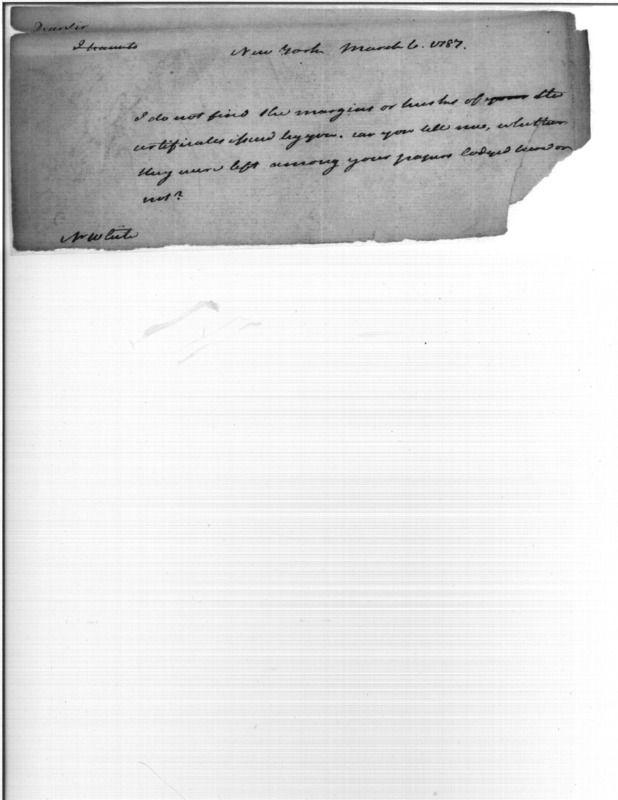 Dear Sir
New York March 6. 1787.
I do not find the margins or husks of your the
certificates issued by you. can you tell me, whether
they were left among your papers lodged here or
not?
Mr White